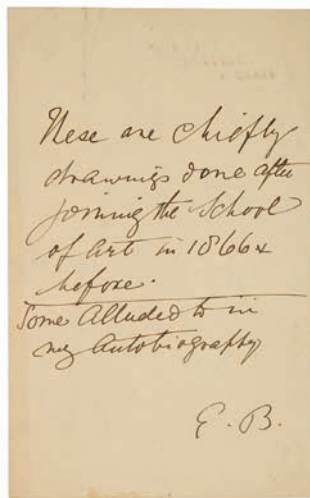 These are chiefly
drawings done after
joining the School
of Art in 1866 &
before.
Some Alluded to in
my Autobiography
E. B.